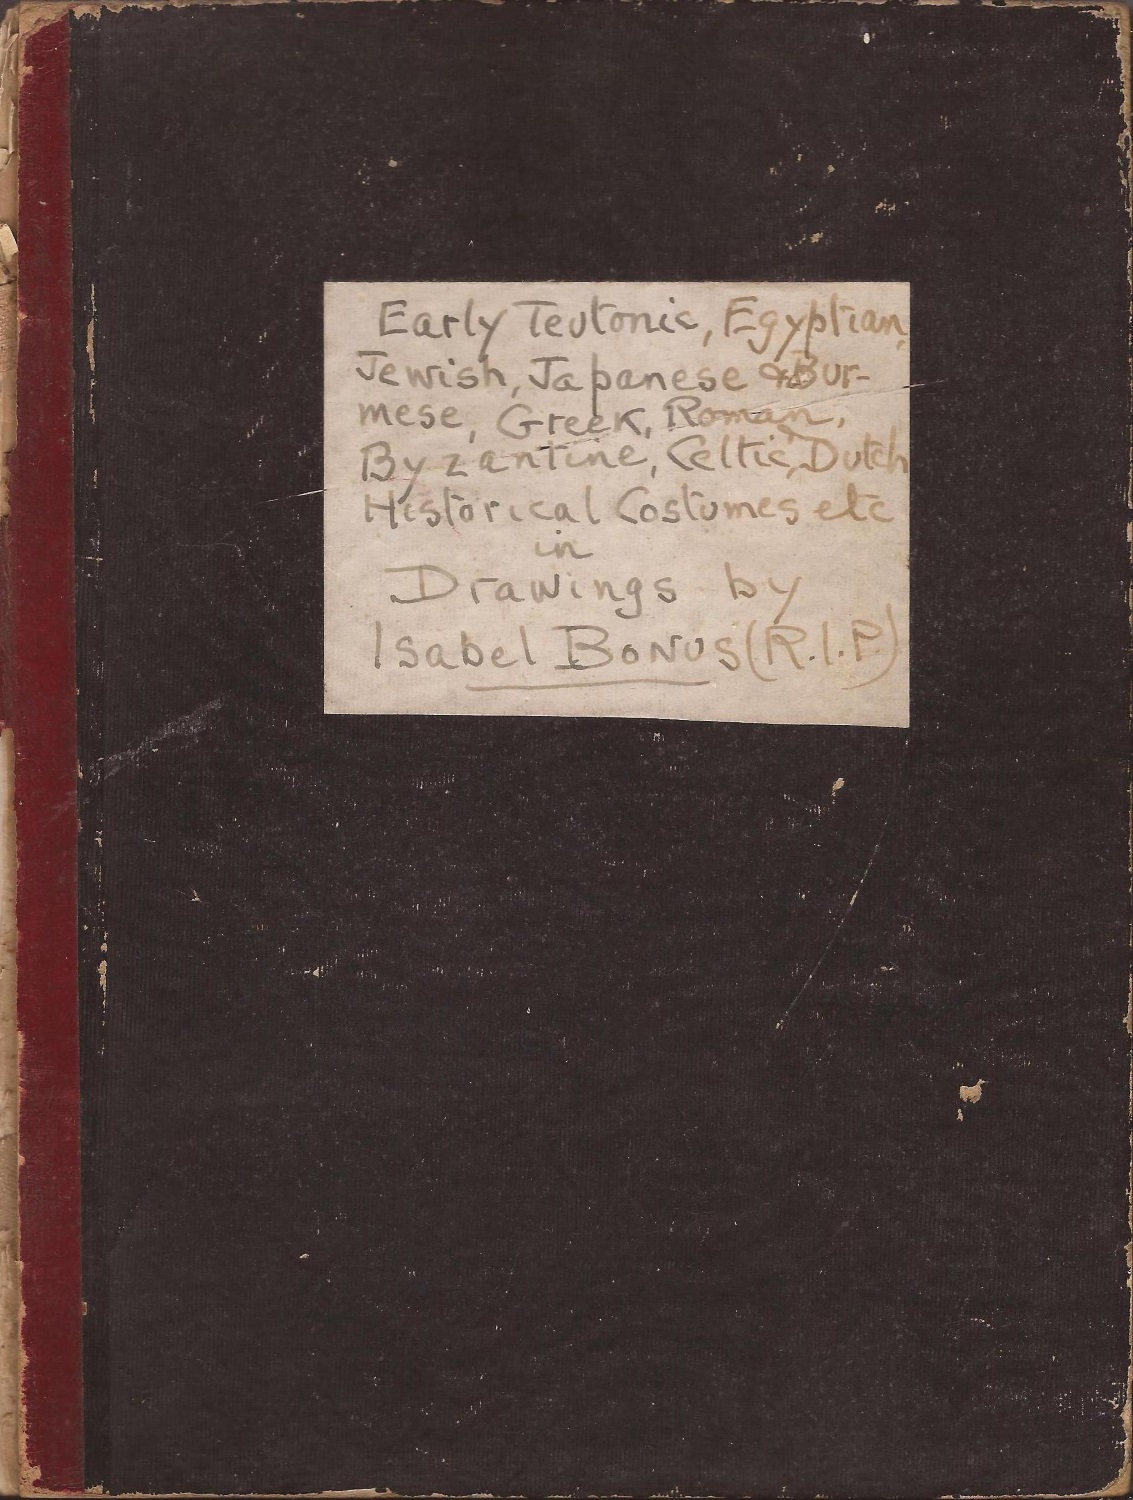 Early Teutonic, Egyptian,
Jewish, Japanese & Bur-
mese, Greek, Roman,
Byzantine, Celtic, Dutch
Historical Costumes etc
in
Drawings by
Isabel BONUS (R.I.P.)